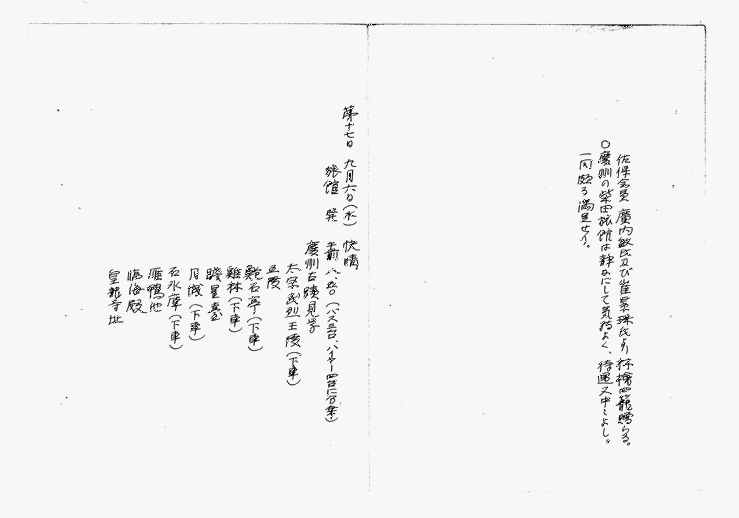 佐保会員 廣内敏氏及び崔景珠氏より林檎四籠贈らる。
○慶州の柴田旅館は静かにして気持よく、待遇又中々よし。
一同頗る満足せり。
第十七日 九月六日(水) 快晴
旅館 発 午前八、五〇(バス三台、ハイヤー四台に分乗)
慶州古蹟見学
太宗武烈王陵(下車)
五陵
鮑石亭(下車)
雞林(下車)
瞻星台
月城(下車)
石氷庫(下車)
雁鴨池
臨海殿
皇龍寺址